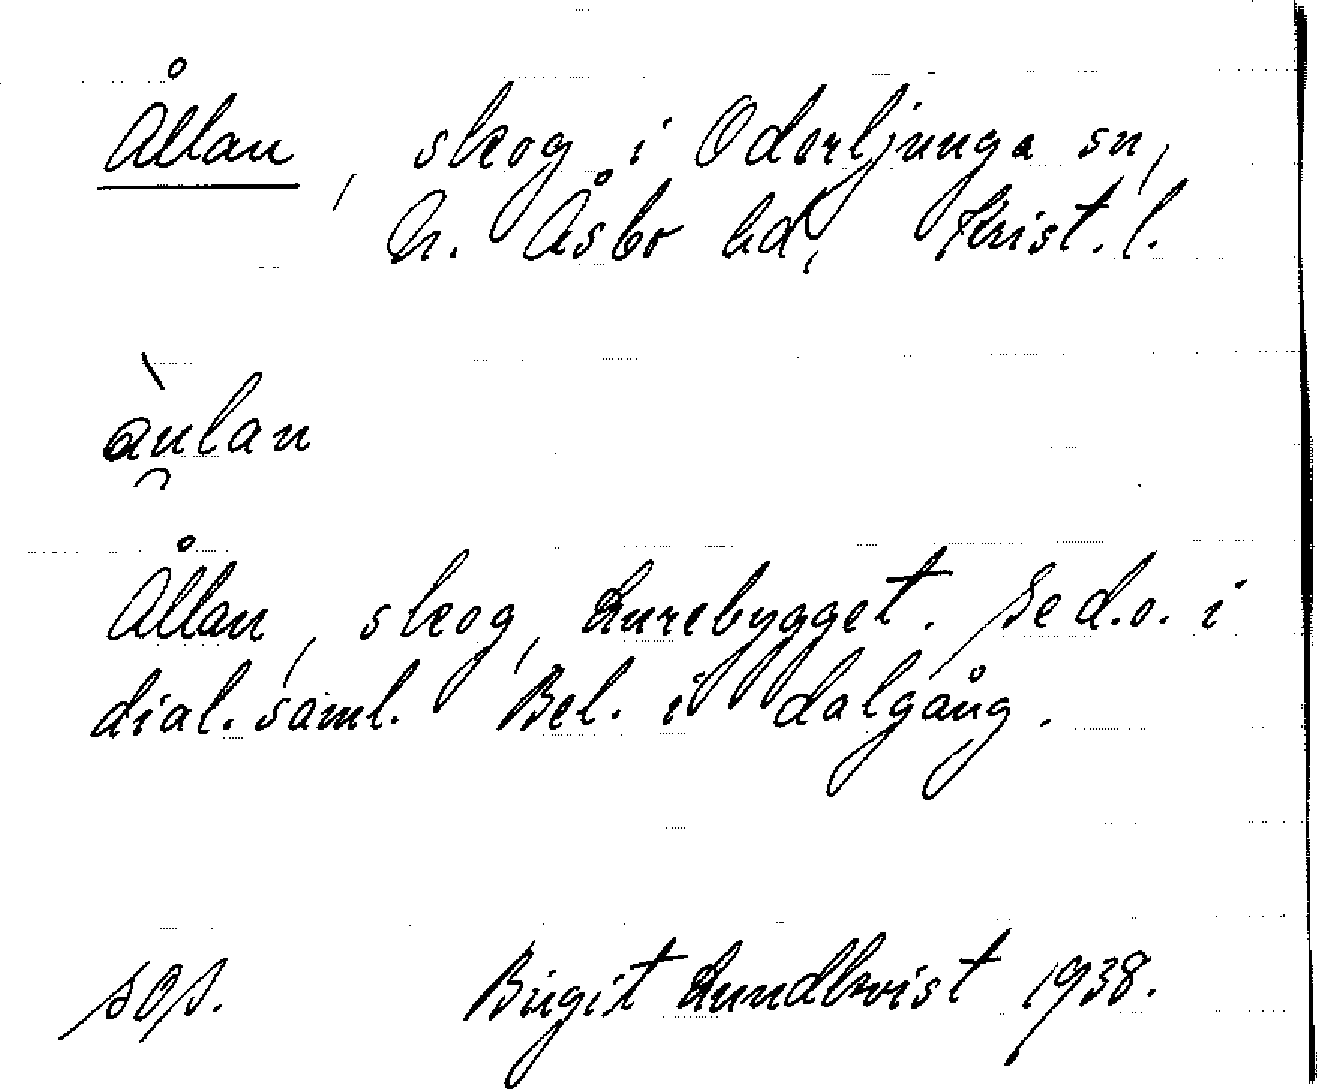 Ållan, skog i Oderljunga sn,
N. Åsbo hd, Krist. l.
Ållan, skog, Lurebygget. Se d.o. i
dial. saml. Bel. i dalgång.
SOS. Birgit Lundkvist 1938.